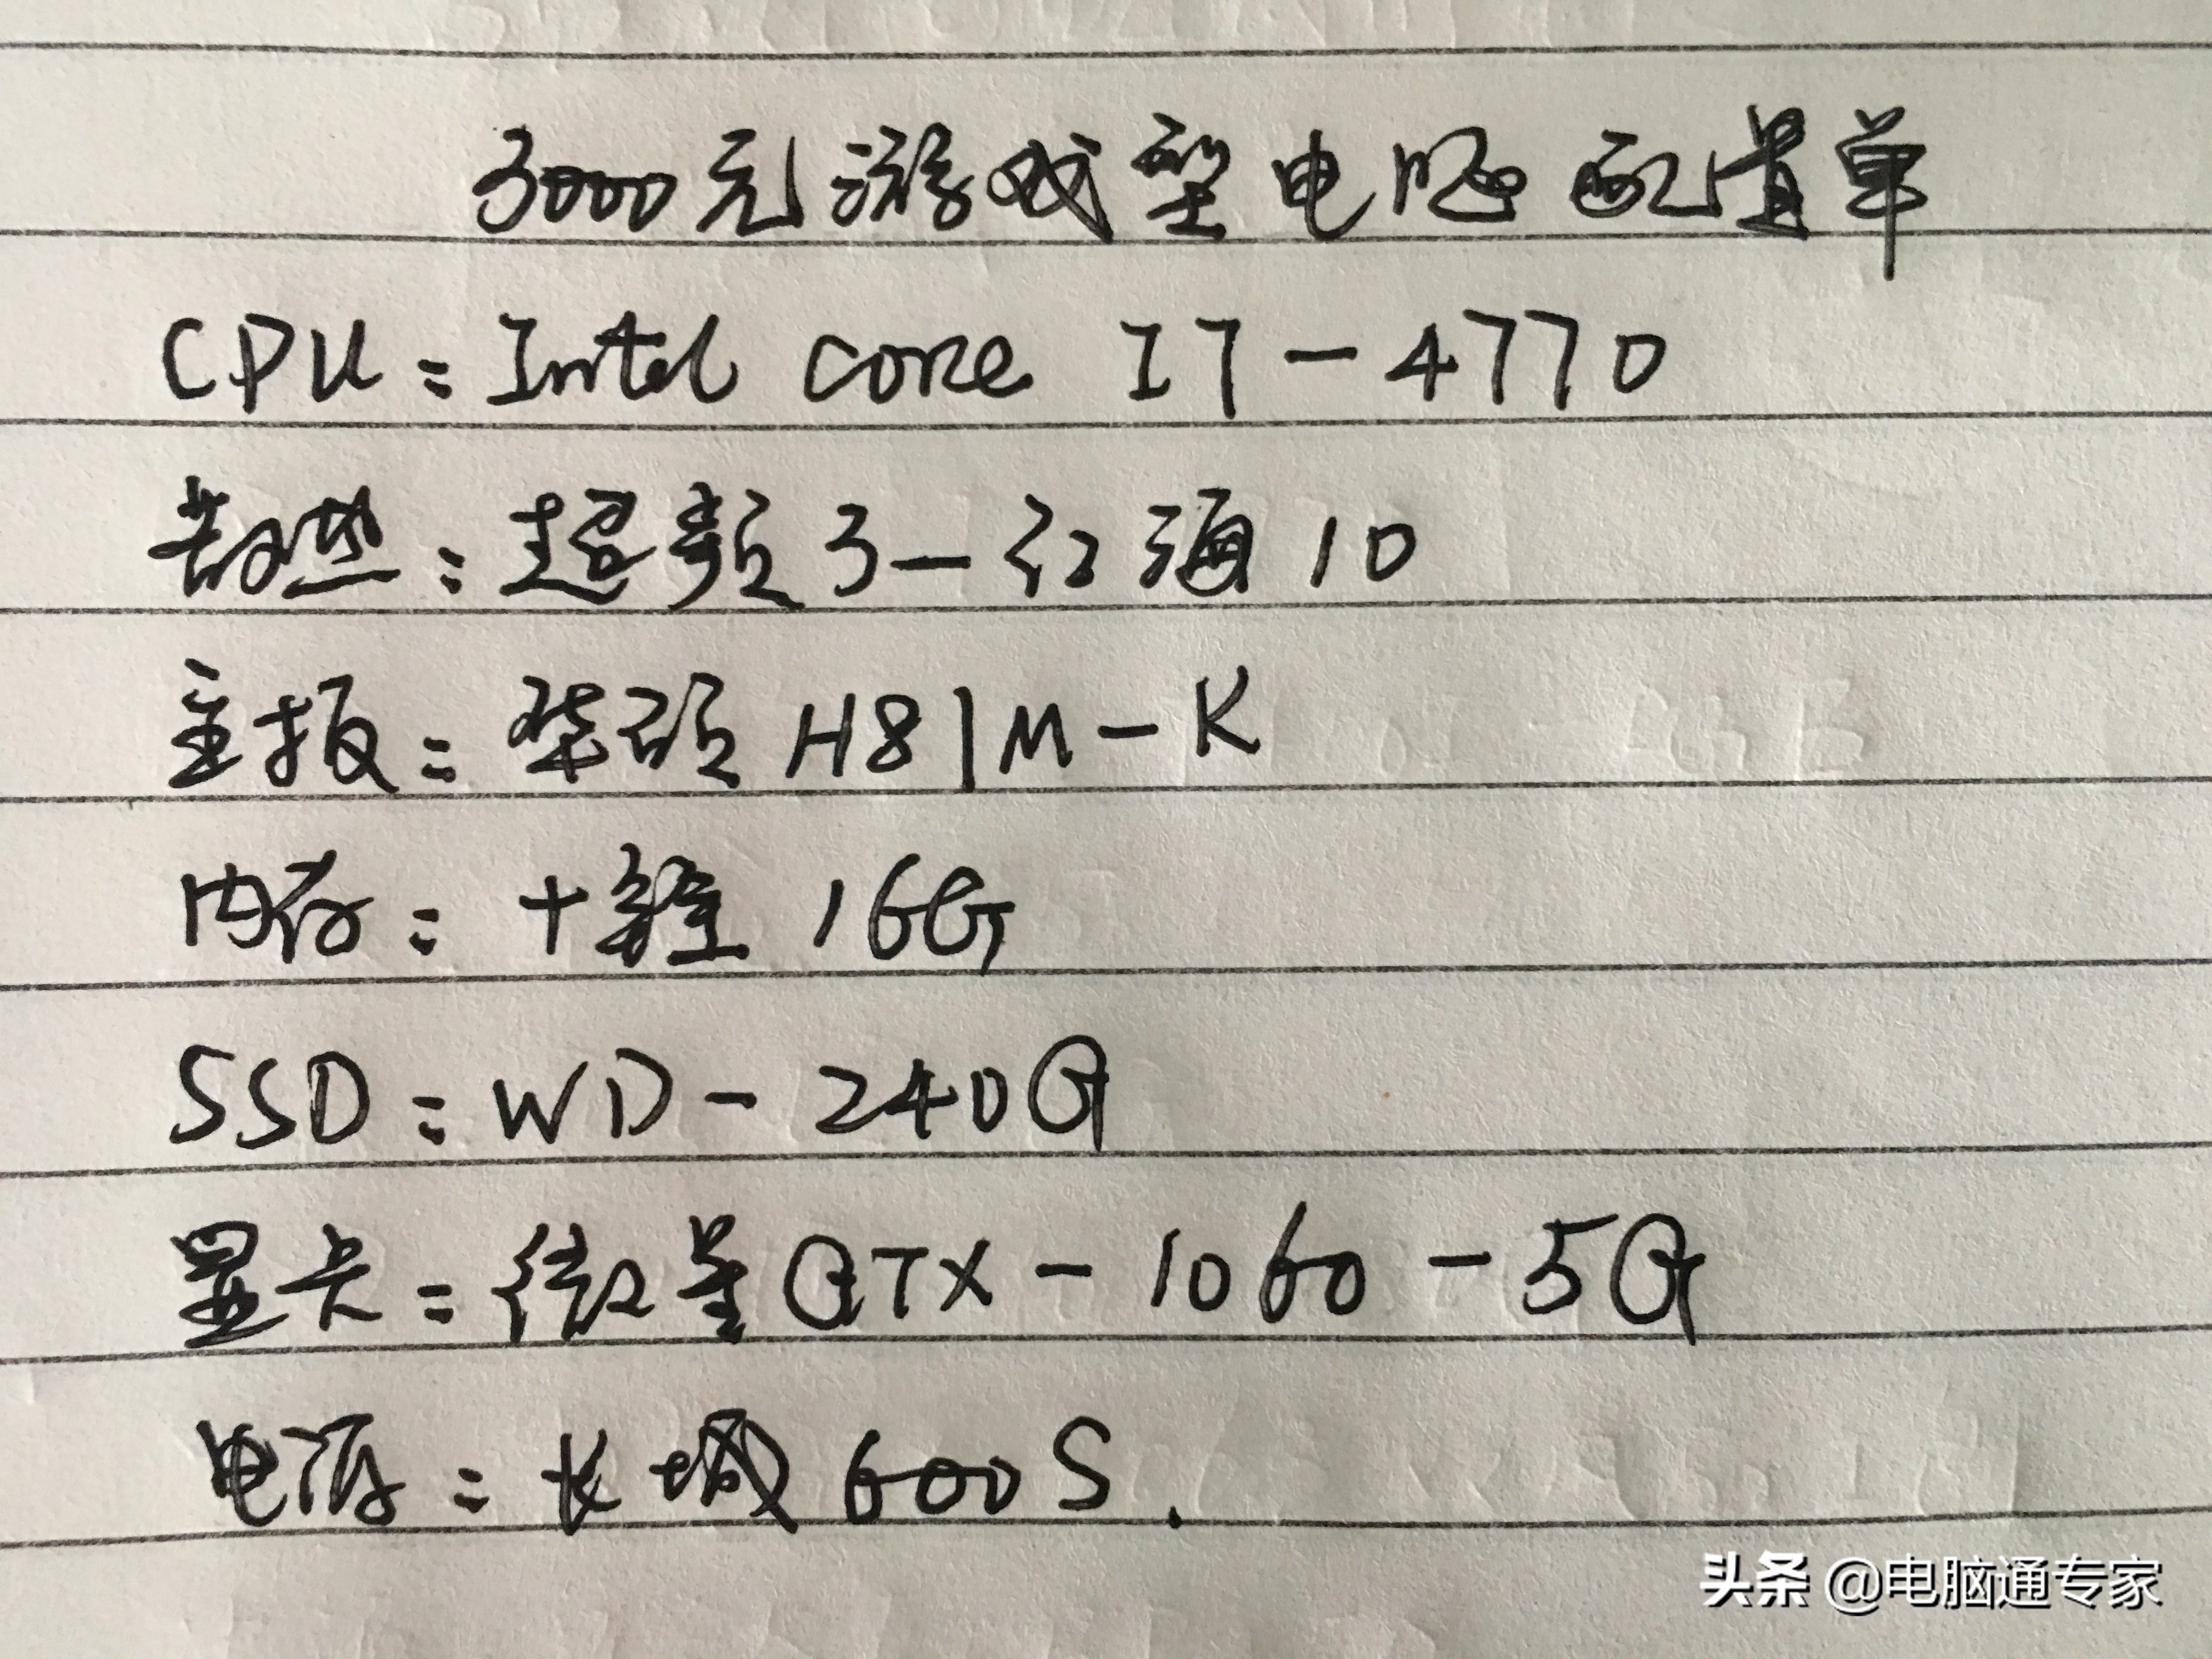 3000元游戏型电脑配置单
CPU：Intel core I7-4770
散热：超频3-红海10
主板：华硕H81M-K
内存：十铨 16G
SSD：WD-240G
显卡：微星GTX-1060-5G
电源：长城600S.
头条 @电脑通专家